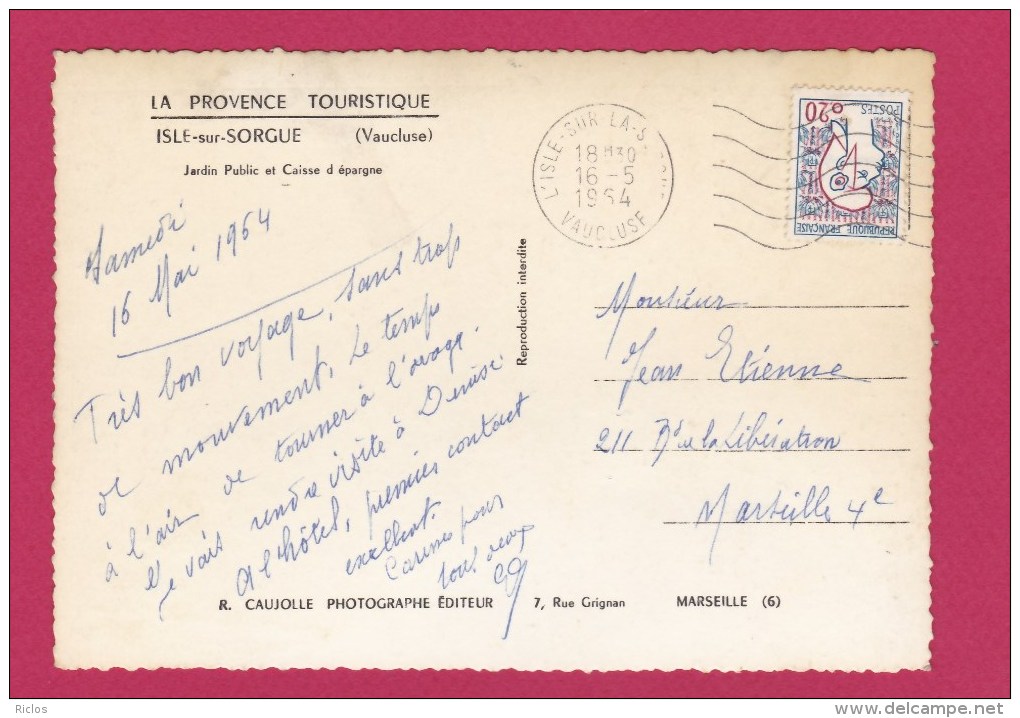 LA PROVENCE TOURISTIQUE
ISLE-sur-SORGUE (Vaucluse)
Jardin Public et Caisse d épargne
Samedi
16 Mai 1964
Très bon voyage, sans trop
de mouvement. Le temps
à l'air de tourner à l'orage.
Je vais rendre visite à Denise
à l'hôtel, premier contact
excellent.
Caresses pour
tous deux
Reproduction interdite
L'ISLE-SUR-LA-S
18H30
16-5
1964
VAUCLUSE
0,20
POSTES
REPUBLIQUE FRANÇAISE
Monsieur
Jean Etienne
211 Bd de la Libération
Marseille 4e
R. CAUJOLLE PHOTOGRAPHE ÉDITEUR 7, Rue Grignan MARSEILLE (6)
Riclos
www.delcampe.net